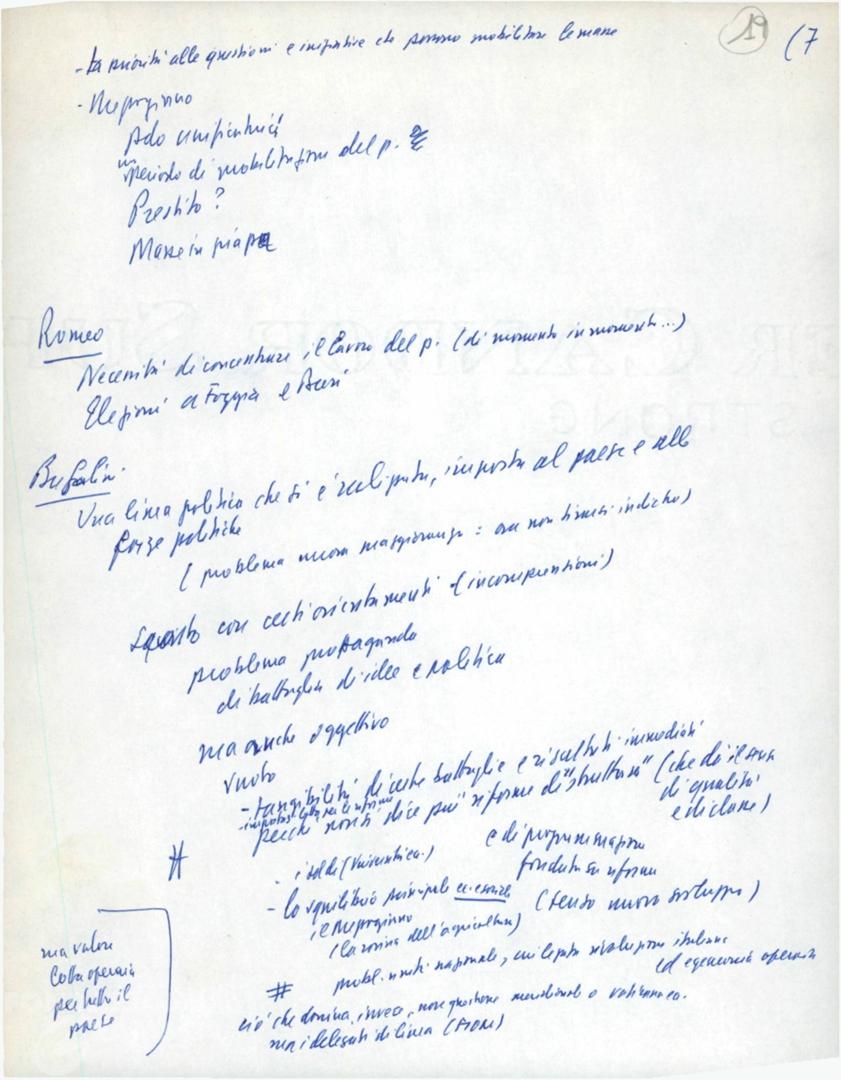 19 (7
- La priorità alle questioni e iniziative che possono mobilitare le masse
- Mezzogiorno
Ado unificatrici
un periodo di mobilitazione del p.
Prestito?
Masse in piazza
Romeo
Necessità di concentrare il lavoro del p. (di momento in momento...)
Elezioni a Foggia e Bari
Bufalini
Una linea politica che si è realizzata, imposta al paese e alle
forze politiche
(problema nuova maggioranza = ora non bisogni indicho)
con certi orientamenti - (incomprensioni)
problema propaganda
di battaglia di idee e politica
ma anche oggettivo
vuoto
- tangibilità di certe battaglie e risultati immediati
perché non si dice più riforme di "struttura" (che dà il senso
di qualità
e di classe)
- i soldi (Universitica.)
e di programmazione
fondata su riforme
- lo squilibrio principale
(senso nuovo sviluppo)
il Mezzogiorno
(la rovina dell'agricoltura)
# probl. unità nazionale, rivoluzione italiana
ed egemonia operaia
ciò che domina, invece, non questione meridionale o vaticanea.
ma i delegati di linea (FIOM)
ma valore
lotta operaia
per tutto il
paese